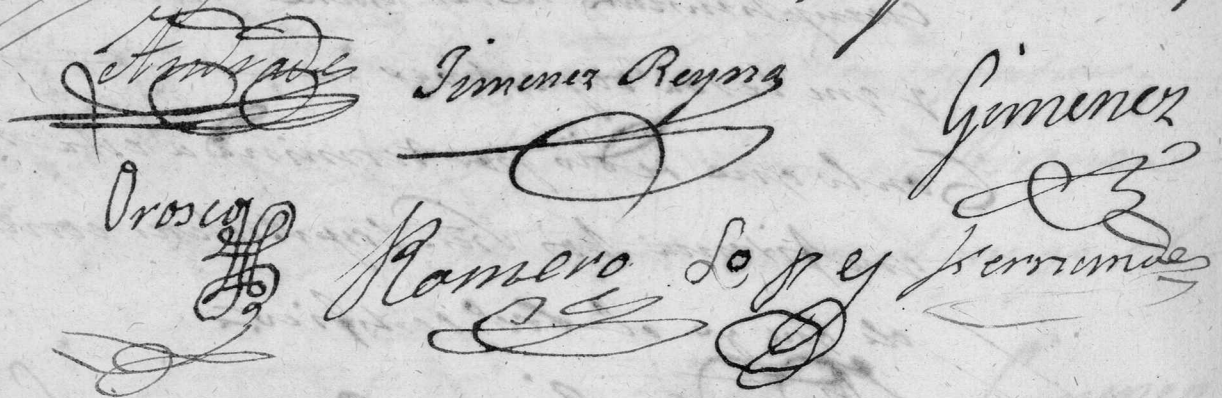 Andrade Jimenez Reyna Gimenez
Orosco Romero Lopez Fernandes